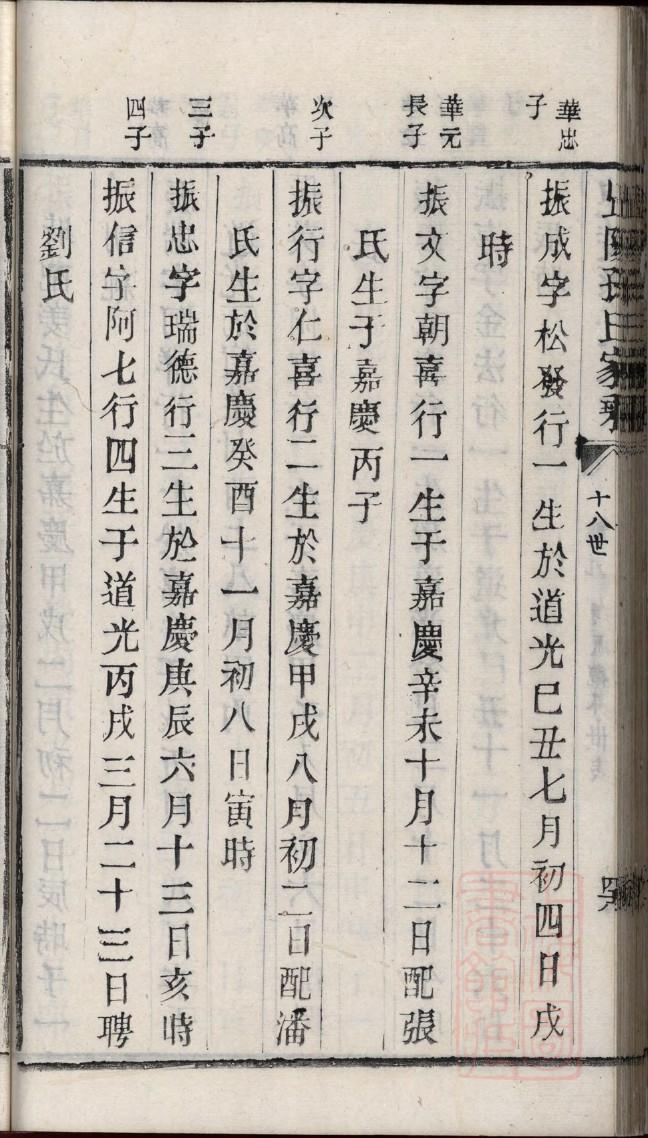 孫氏家乘
十八世
華忠
子
振成字松發行一生於道光己丑七月初四日戌
時
華元
長子
振文字朝喜行一生于嘉慶辛未十月十二日配張
氏生于嘉慶丙子
次子
振行字仁喜行二生於嘉慶甲戌八月初二日配潘
氏生於嘉慶癸酉十一月初八日寅時
三子
振忠字瑞德行三生於嘉慶庚辰六月十三日亥時
四子
振信字阿七行四生于道光丙戌三月二十三日聘
劉氏